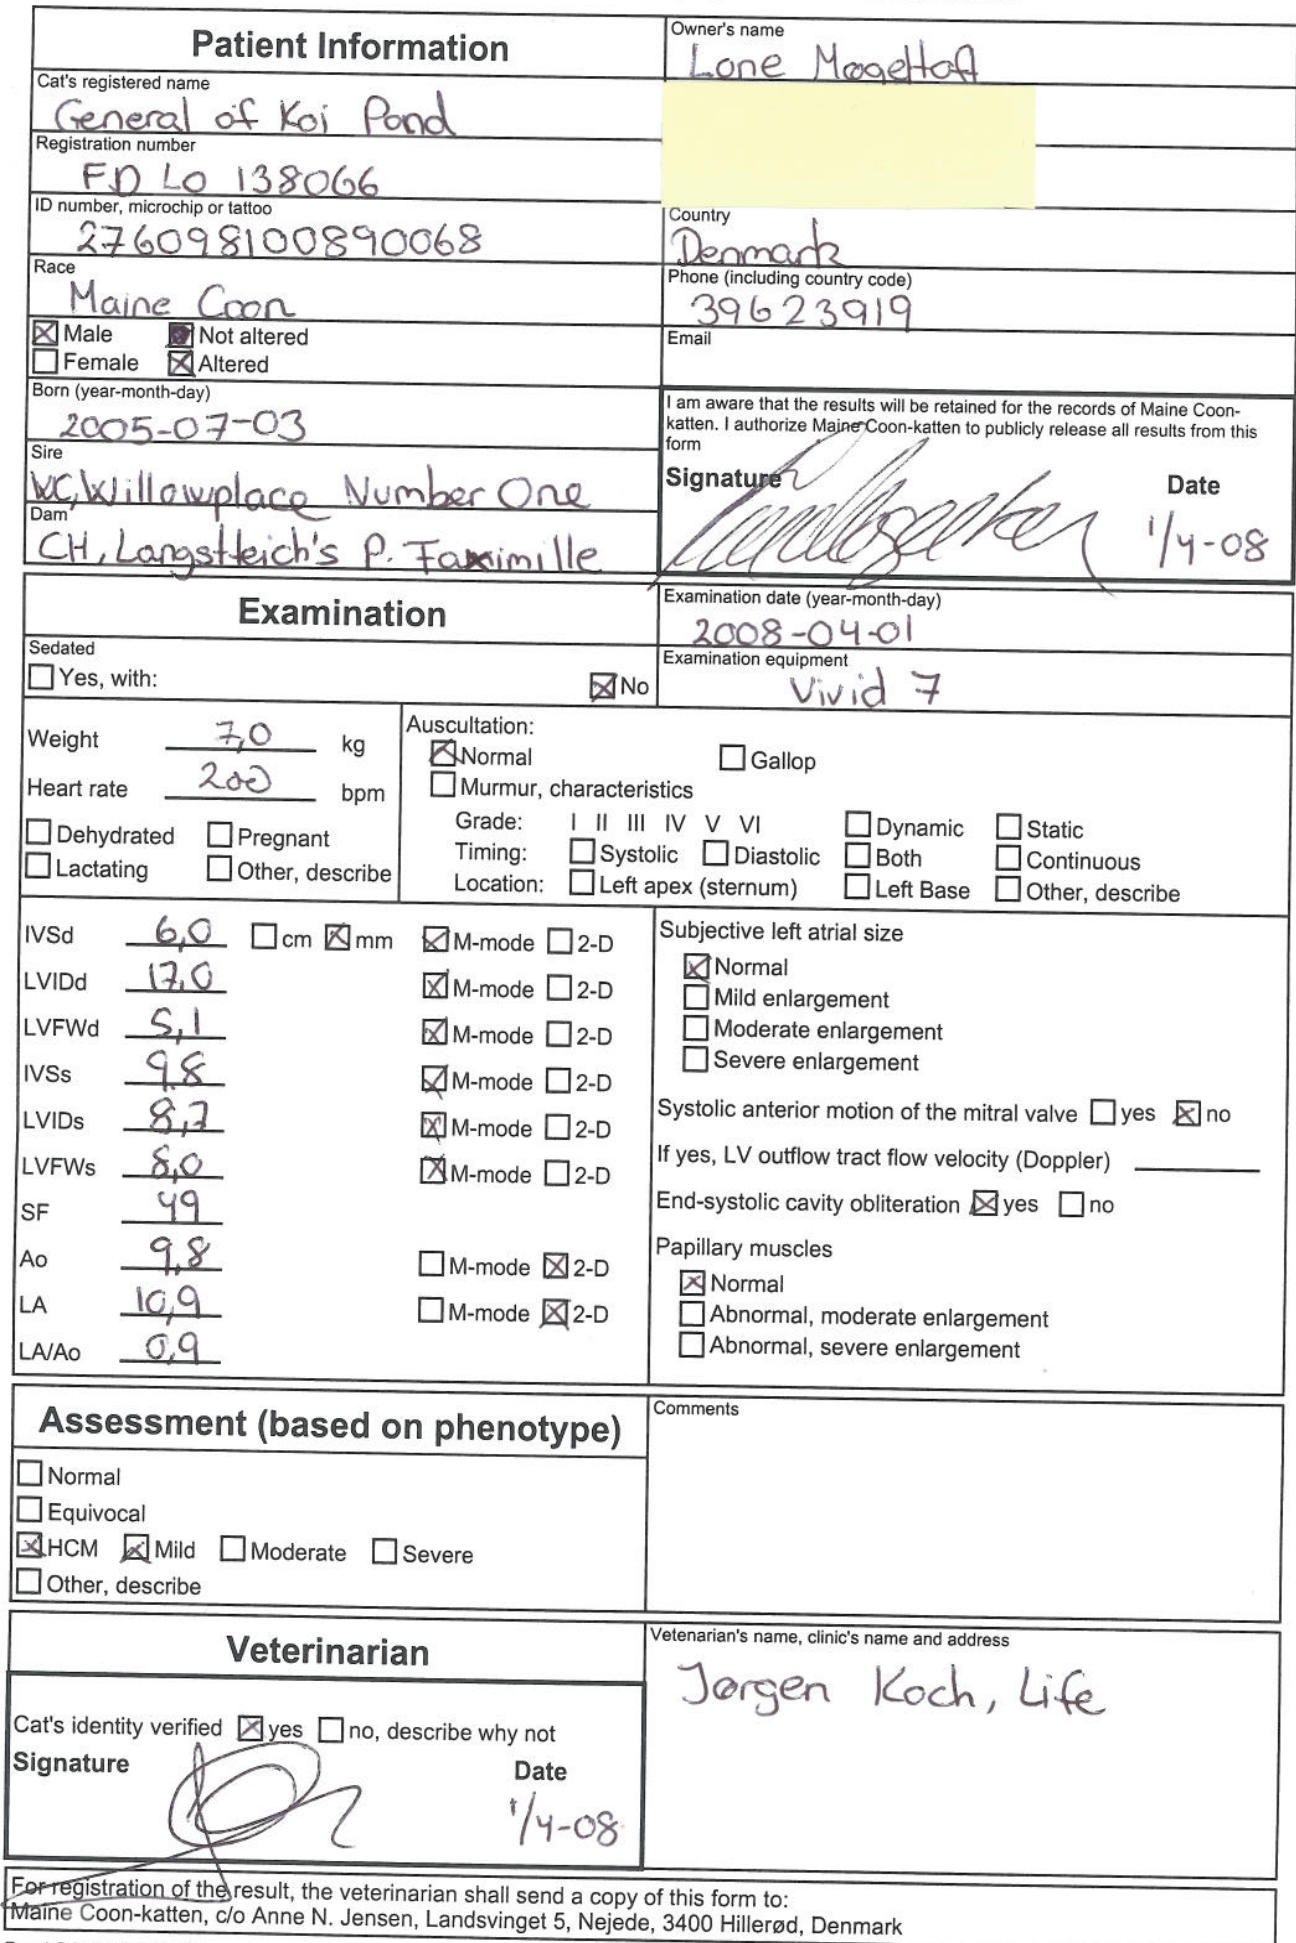 Patient Information
Owner's name
Lone Møgeltoft
Cat's registered name
General of Koi Pond
Registration number
FD LO 138066
ID number, microchip or tattoo
276098100890068
Country
Denmark
Race
Maine Coon
Phone (including country code)
39623919
Male Not altered
Female Altered
Email
Born (year-month-day)
2005-07-03
I am aware that the results will be retained for the records of Maine Coon-
katten. I authorize Maine Coon-katten to publicly release all results from this
form
Sire
WC, Willowplace Number One
Dam
CH, Langstteich's P. Faximille
Signature Date
1/4-08
Examination
Examination date (year-month-day)
2008-04-01
Sedated
Yes, with: No
Examination equipment
Vivid 7
Weight 7,0 kg
Heart rate 200 bpm
Dehydrated Pregnant
Lactating Other, describe
Auscultation:
Normal Gallop
Murmur, characteristics
Grade: I II III IV V VI Dynamic Static
Timing: Systolic Diastolic Both Continuous
Location: Left apex (sternum) Left Base Other, describe
IVSd 6,0 cm mm M-mode 2-D
LVIDd 17,0 M-mode 2-D
LVFWd 5,1 M-mode 2-D
IVSs 9,8 M-mode 2-D
LVIDs 8,7 M-mode 2-D
LVFWs 8,0 M-mode 2-D
SF 49
Ao 9,8 M-mode 2-D
LA 10,9 M-mode 2-D
LA/Ao 0,9
Subjective left atrial size
Normal
Mild enlargement
Moderate enlargement
Severe enlargement
Systolic anterior motion of the mitral valve yes no
If yes, LV outflow tract flow velocity (Doppler)
End-systolic cavity obliteration yes no
Papillary muscles
Normal
Abnormal, moderate enlargement
Abnormal, severe enlargement
Assessment (based on phenotype)
Normal
Equivocal
HCM Mild Moderate Severe
Other, describe
Comments
Veterinarian
Cat's identity verified yes no, describe why not
Signature Date
1/4-08
Vetenarian's name, clinic's name and address
Jørgen Koch, Life
For registration of the result, the veterinarian shall send a copy of this form to:
Maine Coon-katten, c/o Anne N. Jensen, Landsvinget 5, Nejede, 3400 Hillerød, Denmark